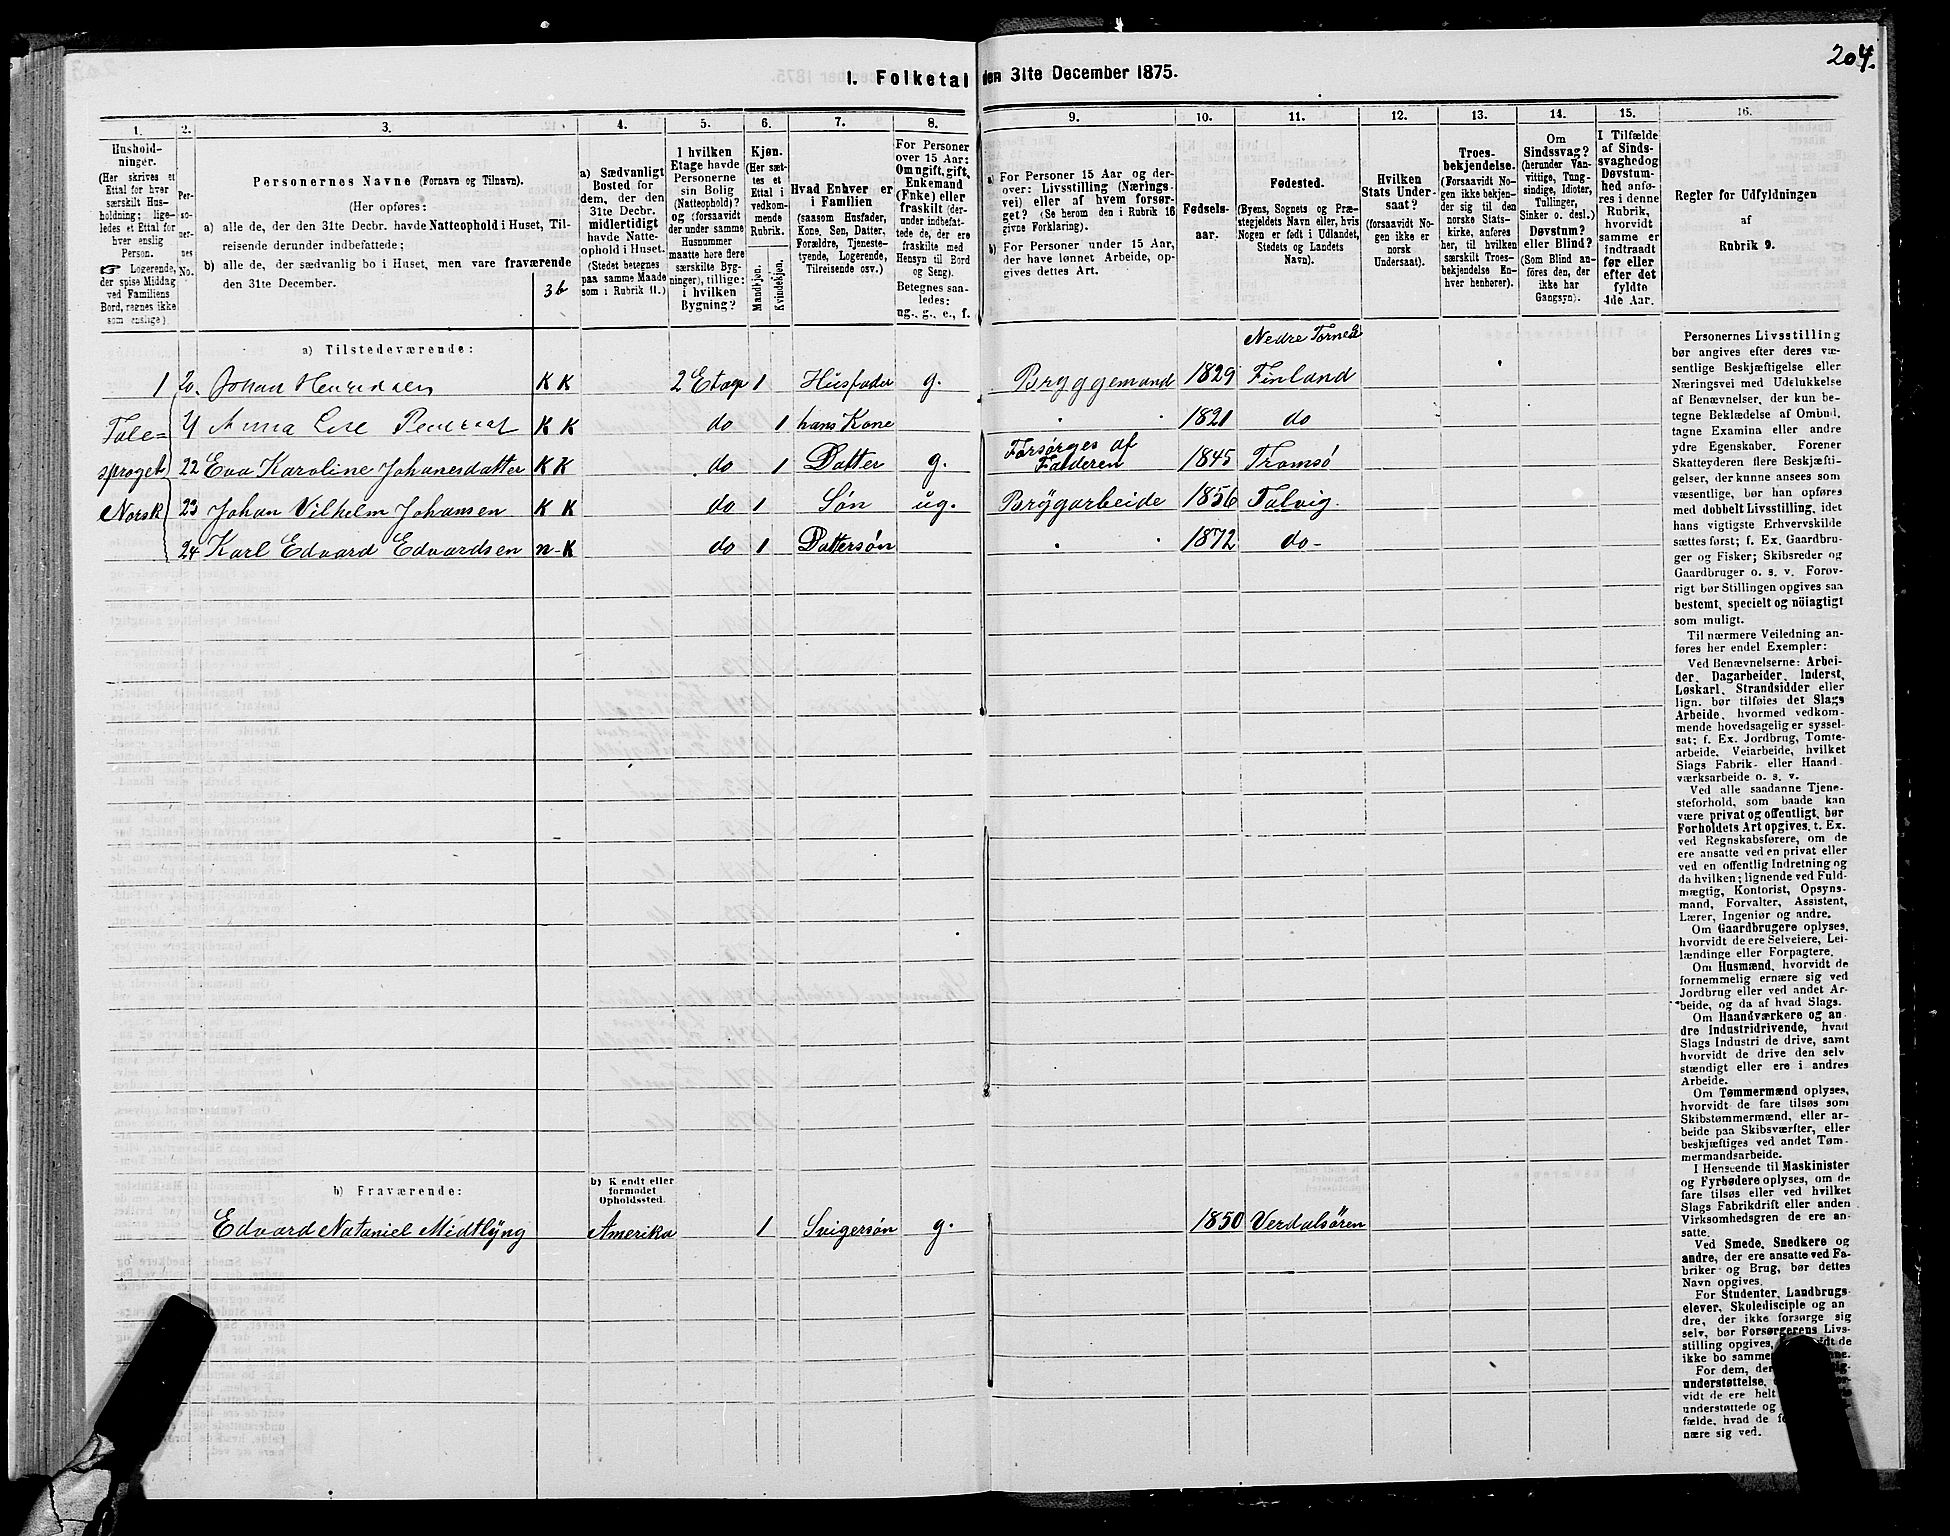 204.
1. Folketal den 31te December 1875.
1.
Husholdninger.
(Her skrives et
Ettal for hver
særskilt Husholdning;
ligeledes et Ettal for
hver enslig
Person.
Logerende,
der spise Middag
ved Familiens
Bord, regnes ikke
som enslige).
2.
Personernes
No.
3.
Personernes Navne (Fornavn og Tilnavn).
(Her opføres:
a) alle de, der den 31te Decbr. havde Natteophold i Huset, Tilreisende derunder indbefattede;
b) alle de, der sædvanlig bo i Huset, men vare fraværende
den 31te December.
3b
4.
a) Sædvanligt
Bosted for
dem, der den
31te Decbr.
midlertidigt
havde Natteophold i Huset.
(Stedet betegnes
paa samme Maade
som i Rubrik 11.)
5.
I hvilken
Etage havde
Personerne
sin Bolig
(Natteophold)?
og (forsaavidt
der under samme
Husnummer
maatte høre flere
særskilte Bygninger), tillige:
i hvilken
Bygning?
6.
Kjøn.
(Her sættes et
Ettal i
vedkommende
Rubrik.
Mandkjøn.
Kvindekjøn.
7.
Hvad Enhver er
i Familien
(saasom Husfader,
Kone, Søn, Datter,
Forældre, Tjenestetyende, Logerende,
Tilreisende osv.)
8.
For Personer
over 15 Aar:
Om ugift, gift,
Enkemand
(Enke) eller
fraskilt (derunder indbefattede de, der ere
fraskilte med
Hensyn til Bord
og Seng).
Betegnes saaledes:
ug., g., e., f.
9.
a) For Personer 15 Aar og derover: Livsstilling (Næringsvei) eller af hvem forsørget? (Se herom den i Rubrik 16
givne Forklaring).
b) For Personer under 15 Aar,
der have lønnet Arbeide, opgives dettes Art.
10.
Fødselsaar.
11.
Fødested.
(Byens, Sognets og Præstegjeldets Navn eller, hvis
Nogen er født i Udlandet,
Stedets og Landets
Navn).
12.
Hvilken
Stats Undersaat?
(forsaavidt Nogen ikke er
norsk
Undersaat).
13.
Troesbekjendelse.
(Forsaavidt Nogen ikke bekjender sig til den
norske Statskirke, anføres
her, til hvilken
særskilt Troesbekjendelse Enhver henhører).
14.
Om
Sindssvag?
(herunder Vanvittige, Tungsindige, Idioter,
Tullinger,
Sinker o. desl.)
Døvstum?
eller Blind?
(Som Blind anføres den, der
ikke har
Gangsyn).
15.
I Tilfælde
af Sindssvaghed og
Døvstumhed anføres i denne
Rubrik,
hvorvidt
samme er
indtraadt
før eller
efter det
fyldte
4de Aar.
16.
Regler for Udfyldningen
af
Rubrik 9.
a) Tilstedeværende:
Nedre Torneå
1 20. Johan Henriksen K K 2 Etage 1 Husfader g. Bryggemand 1829 Finland
Tale= 21 Anna Lise K K do 1 hans Kone " 1821 do
sproget 22 Eva Karoline Johanesdatter K K do 1 Datter g. Forsørges af Faderen 1845 Tromsø
Norsk 23 Johan Vilhelm Johansen K K do 1 Søn ug. Brygarbeide 1856 Talvig.
24 Karl Edvard Edvardsen n-K do 1 Dattersøn " 1872 do-
b) Fraværende:
b) Kjendt eller
formodet
Opholdssted.
Edvard Nataniel Midtlyng Amerika 1 Svigersøn g. 1850 Verdalsören
Personernes Livsstilling
bør angives efter deres væsentlige Beskjæftigelse eller
Næringsvei med Udelukkelse
af Benævnelser, der kun betegne Beklædelse af Ombud,
tagne Examina eller andre
ydre Egenskaber. Forener
Skatteyderen flere Beskjæftigelser, der kunne ansees som
væsentlige, bør han opføres
med dobbelt Livsstilling, idet
hans vigtigste Erhvervskilde
sættes først; f. Ex. Gaardbruger og Fisker; Skibsreder og
Gaardbruger o. s. v. Forøvrigt bør Stillingen opgives saa
bestemt, specielt og nöiagtigt
som muligt.
Til nærmere Veiledning anføres her endel Exempler:
Ved Benævnelserne: Arbeider, Dagarbeider, Inderst,
Løskarl, Strandsidder eller
lign. bør tilføies det Slags
Arbeide, hvormed vedkommende hovedsagelig er sysselsat; f. Ex. Jordbrug, Tomtearbeide, Veiarbeide, hvilket
Slags Fabrik- eller Haandværksarbeide o. s. v.
Ved alle saadanne Tjenesteforhold, som baade kan
være privat og offentligt, bør
Forholdets Art opgives, t. Ex.
ved Regnskabsførere, om de
ere ansatte ved en privat eller
ved en offentlig Indretning og
da hvilken; lignende ved Fuldmægtig, Kontorist, Opsynsmand, Forvalter, Assistent,
Lærer, Ingeniør og andre.
Om Gaardbrugere oplyses,
hvorvidt de ere Selveiere, Leilændinge eller Forpagtere.
Om Husmænd, hvorvidt de
fornemmelig ernære sig ved
Jordbrug eller ved andet Arbeide, og da af hvad Slags.
Om Haandværkere og andre Industridrivende, hvad
Slags Industri de drive, samt
hvorvidt de drive den selvstændigt eller ere i andres
Arbeide.
Om Tømmermænd oplyses,
hvorvidt de fare tilsøs som
Skibstømmermænd, eller arbeide paa Skibsværfter, eller
beskjæftiges ved andet Tømmermandsarbeide.
I Henseende til Maskinister
og Fyrbødere oplyses, om de
fare tilsøs eller ved hvilket
Slags Fabrikdrift eller anden
Virksomhedsgren de ere ansatte.
Ved Smede, Snedkere og
andre, der ere ansatte ved Fabriker og Brug, bør dettes
Navn opgives.
For Studenter, Landbrugselever, Skoledisciple og andre, der ikke forsørge sig
selv, bør Forsørgerens Livsstilling opgives,
ikke bo samme
For dem, der
understøttelse,
vidt de ere helt
understøttede og
fælde, hvad de
nære sig ved.